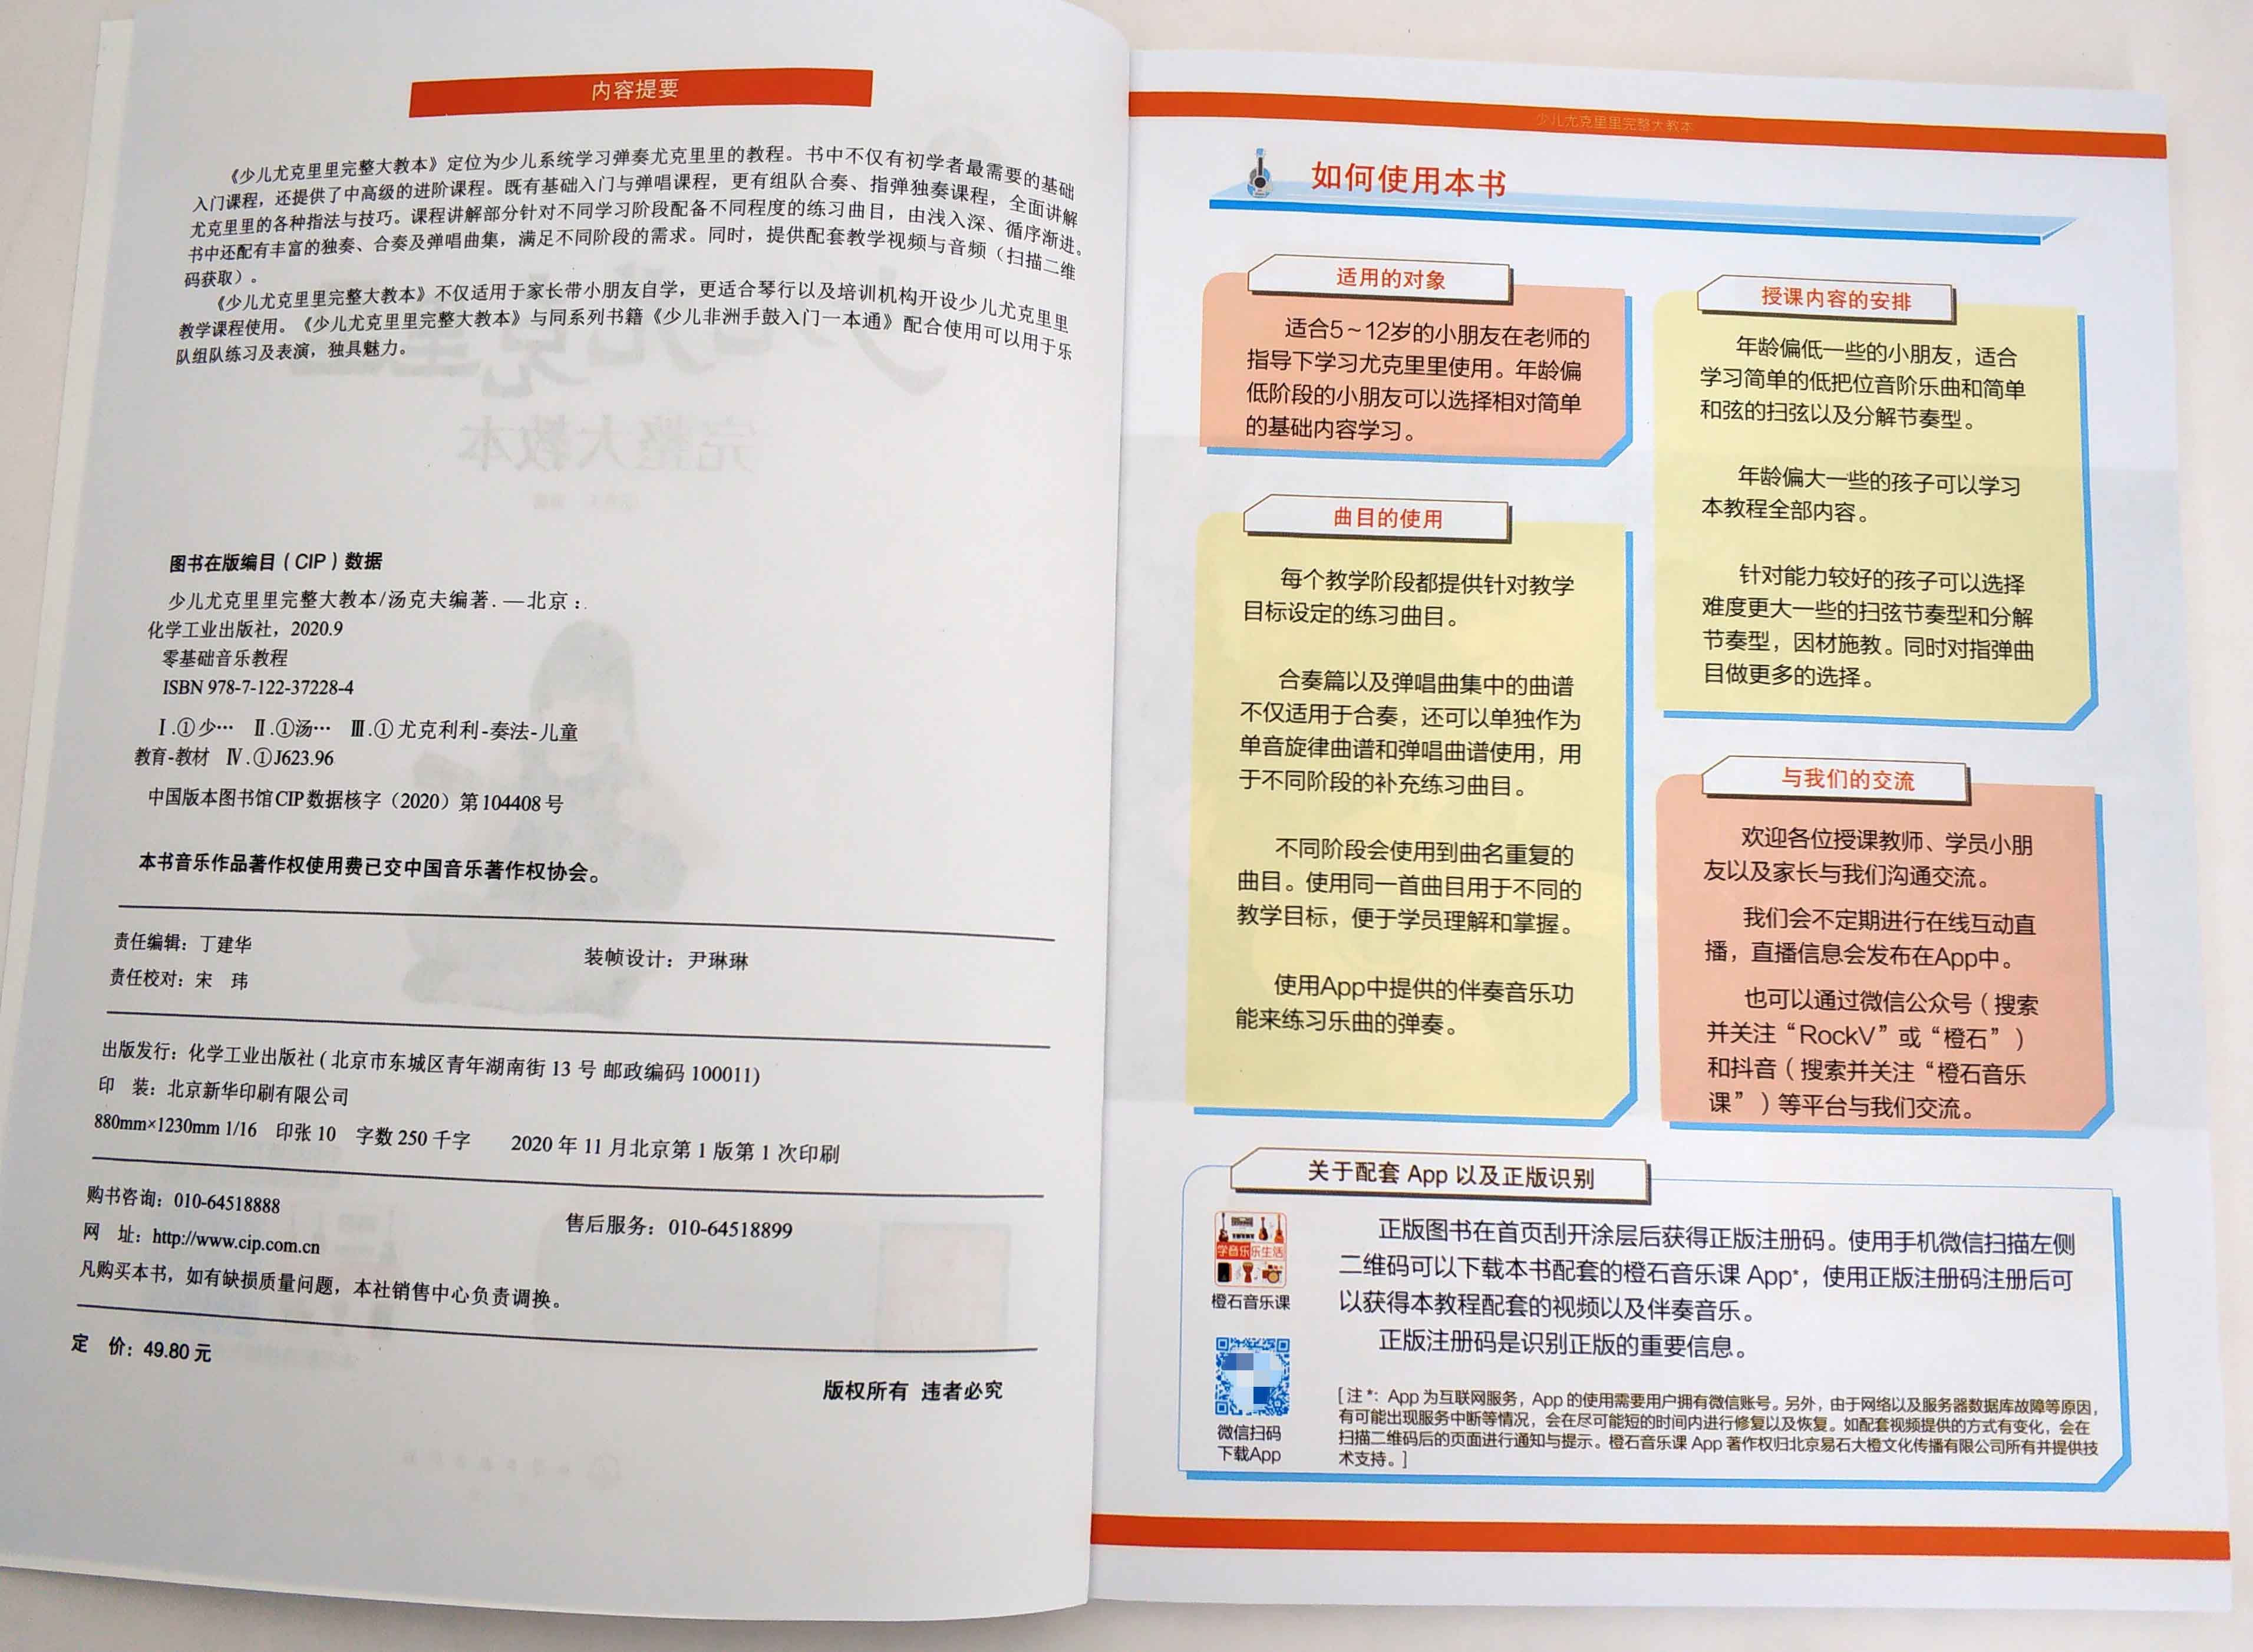 内容提要
《少儿尤克里里完整大教本》定位为少儿系统学习弹奏尤克里里的教程。书中不仅有初学者最需要的基础
入门课程，还提供了中高级的进阶课程。既有基础入门与弹唱课程，更有组队合奏、指弹独奏课程，全面讲解
尤克里里的各种指法与技巧。课程讲解部分针对不同学习阶段配备不同程度的练习曲目，由浅入深、循序渐进。
书中还配有丰富的独奏、合奏及弹唱曲集，满足不同阶段的需求。同时，提供配套教学视频与音频（扫描二维
码获取）。
《少儿尤克里里完整大教本》不仅适用于家长带小朋友自学，更适合琴行以及培训机构开设少儿尤克里里
教学课程使用。《少儿尤克里里完整大教本》与同系列书籍《少儿非洲手鼓入门一本通》配合使用可以用于乐
队组队练习及表演，独具魅力。
图书在版编目（CIP）数据
少儿尤克里里完整大教本/汤克夫编著．—北京：
化学工业出版社，2020.9
零基础音乐教程
ISBN 978-7-122-37228-4
Ⅰ.①少… Ⅱ.①汤… Ⅲ.①尤克利利-奏法-儿童
教育-教材 Ⅳ.①J623.96
中国版本图书馆CIP数据核字（2020）第104408号
本书音乐作品著作权使用费已交中国音乐著作权协会。
责任编辑：丁建华 装帧设计：尹琳琳
责任校对：宋 玮
出版发行：化学工业出版社（北京市东城区青年湖南街13号 邮政编码100011）
印 装：北京新华印刷有限公司
880mm×1230mm 1/16 印张10 字数250千字 2020年11月北京第1版第1次印刷
购书咨询：010-64518888 售后服务：010-64518899
网 址：http://www.cip.com.cn
凡购买本书，如有缺损质量问题，本社销售中心负责调换。
定 价：49.80元
版权所有 违者必究
少儿尤克里里完整大教本
如何使用本书
适用的对象
适合5～12岁的小朋友在老师的
指导下学习尤克里里使用。年龄偏
低阶段的小朋友可以选择相对简单
的基础内容学习。
曲目的使用
每个教学阶段都提供针对教学
目标设定的练习曲目。
合奏篇以及弹唱曲集中的曲谱
不仅适用于合奏，还可以单独作为
单音旋律曲谱和弹唱曲谱使用，用
于不同阶段的补充练习曲目。
不同阶段会使用到曲名重复的
曲目。使用同一首曲目用于不同的
教学目标，便于学员理解和掌握。
使用App中提供的伴奏音乐功
能来练习乐曲的弹奏。
授课内容的安排
年龄偏低一些的小朋友，适合
学习简单的低把位音阶乐曲和简单
和弦的扫弦以及分解节奏型。
年龄偏大一些的孩子可以学习
本教程全部内容。
针对能力较好的孩子可以选择
难度更大一些的扫弦节奏型和分解
节奏型，因材施教。同时对指弹曲
目做更多的选择。
与我们的交流
欢迎各位授课教师、学员小朋
友以及家长与我们沟通交流。
我们会不定期进行在线互动直
播，直播信息会发布在App中。
也可以通过微信公众号（搜索
并关注“RockV”或“橙石”）
和抖音（搜索并关注“橙石音乐
课”）等平台与我们交流。
关于配套 App 以及正版识别
学音乐乐生活
橙石音乐课
微信扫码
下载App
正版图书在首页刮开涂层后获得正版注册码。使用手机微信扫描左侧
二维码可以下载本书配套的橙石音乐课 App*，使用正版注册码注册后可
以获得本教程配套的视频以及伴奏音乐。
正版注册码是识别正版的重要信息。
[注*：App 为互联网服务，App 的使用需要用户拥有微信账号。另外，由于网络以及服务器数据库故障等原因，
有可能出现服务中断等情况，会在尽可能短的时间内进行修复以及恢复。如配套视频提供的方式有变化，会在
扫描二维码后的页面进行通知与提示。橙石音乐课 App 著作权归北京易石大橙文化传播有限公司所有并提供技
术支持。]